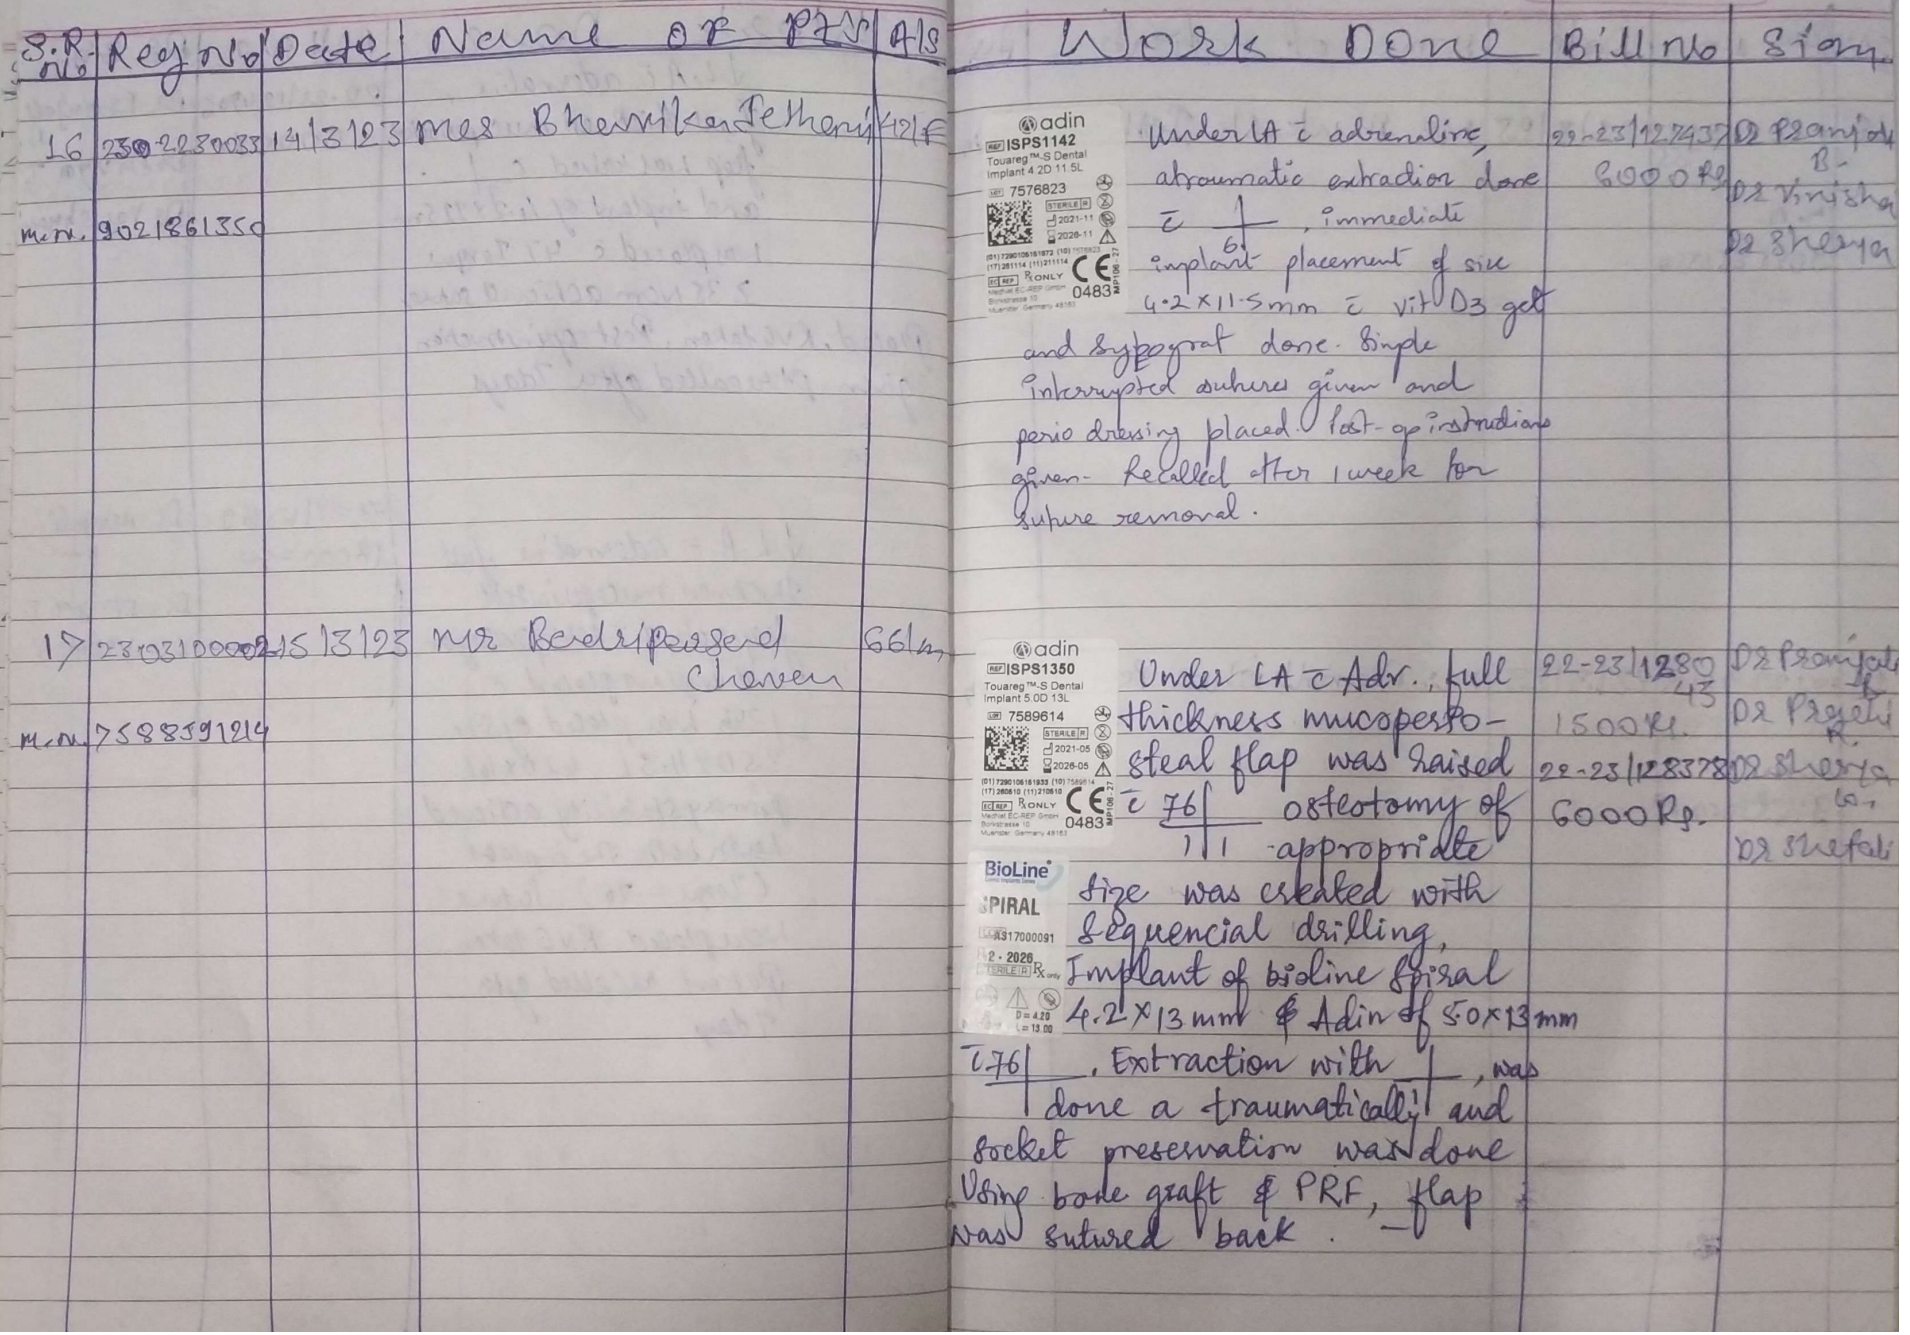 S.R. No Reg No Date Name OF Ptn A/S Work Done Bill No Sign.
16 2302230033 14/3/23 mrs Bhavika Jethani 42/F
m.n. 9021861350
adin
REF ISPS1142
Touareg™-S Dental
Implant 4.2D 11.5L
LOT 7576823
STERILE R
2021-11
2026-11
(17) 261114 (11) 211114
EC REP Rx ONLY
MedNet EC-REP GmbH
Borkstrasse 10
Muenster Germany 48163
CE 0483
MP106-27
Under LA c̄ adrenaline,
atraumatic extraction done
c̄ 6 , immediate
implant placement of size
4.2 x 11.5mm c̄ vit D3 gel
and sybograf done. Simple
interrupted sutures given and
perio dressing placed. Post-op instructions
given. Recalled after 1 week for
suture removal.
22-23/127437
6000 Rs
Dr Pranjali
B.
Dr Vinisha
Dr Shreya
17 2303100002 15/3/23 mr Badriparsad
Chavan 66/m
m.n. 7588591214
adin
REF ISPS1350
Touareg™-S Dental
Implant 5.0D 13L
LOT 7589614
STERILE R
2021-05
2026-05
(17) 260510 (11) 210510
EC REP Rx ONLY
MedNet EC-REP GmbH
Borkstrasse 10
Muenster Germany 48163
CE 0483
MP106-27
BioLine
SPIRAL
AS17000091
2-2026
STERILE R Rx only
D = 4.20
L = 13.00
Under LA c̄ Adr., full
thickness mucoperio-
steal flap was raised
c̄ 76 osteotomy of
1 1 appropriate
size was created with
sequencial drilling,
Implant of bioline spiral
4.2 x 13 mm & Adin of 5.0 x 13 mm
c̄ 76 . Extraction with , was
done a traumatically and
socket preservation was done
Using bone graft & PRF, flap
was sutured back.
22-23/1280
43
1500 Rs.
22-23/128378
6000 Rs.
Dr Pranjali
B
Dr Prajakti
R.
Dr Shreya
Dr Shefali